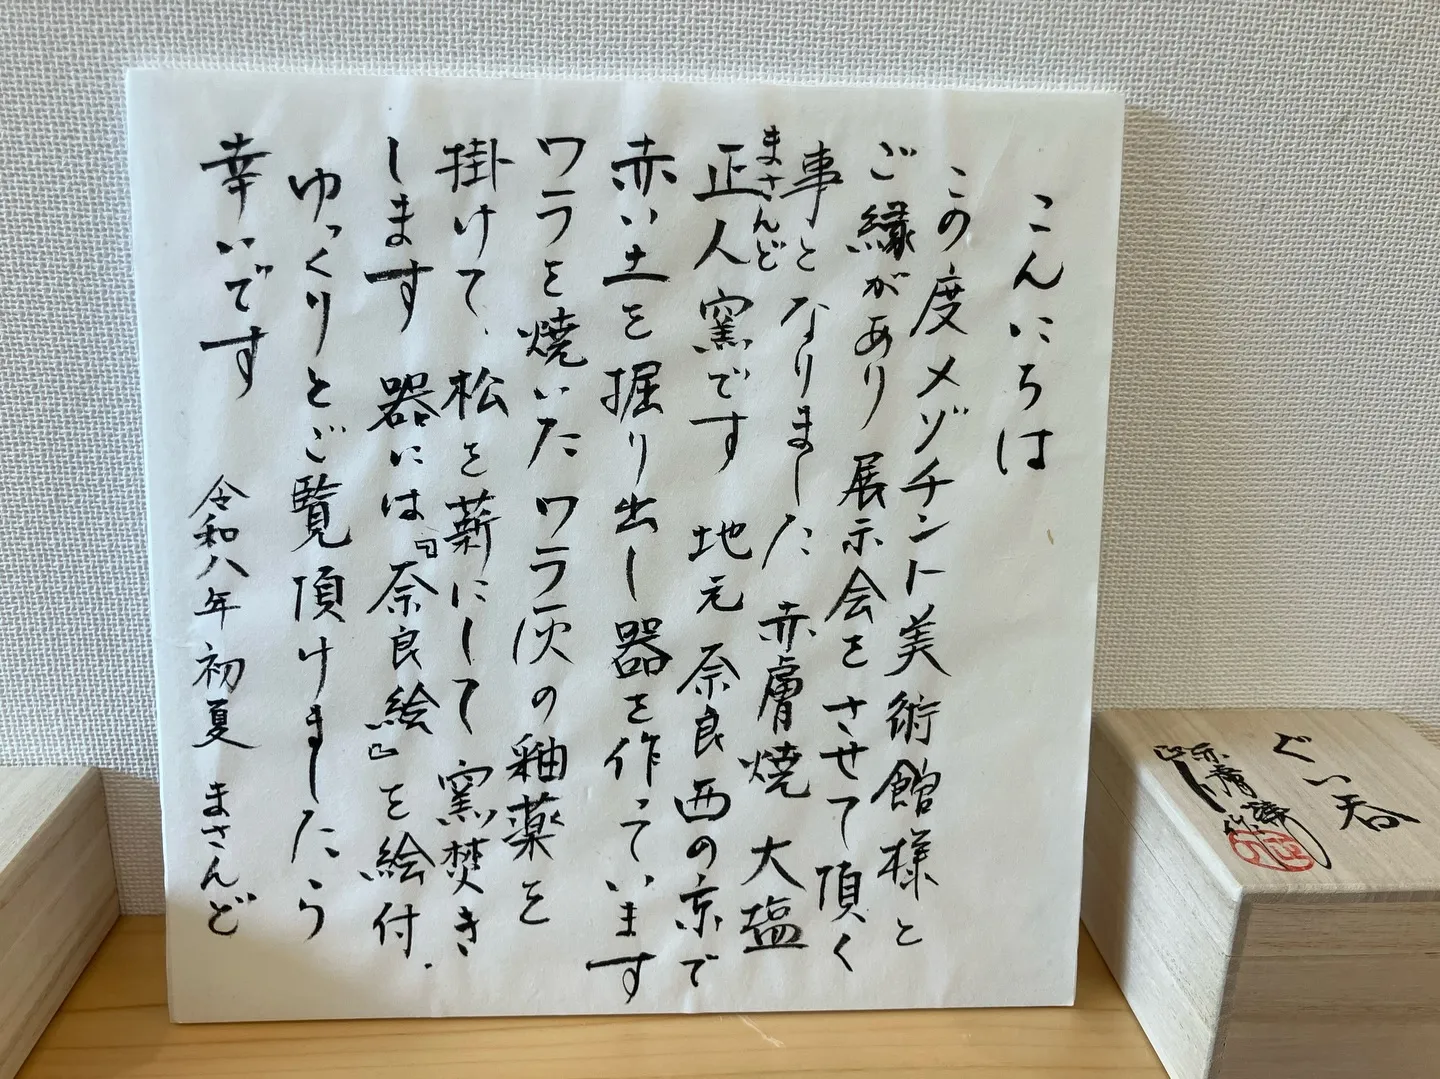 こんにちは
この度メゾチント美術館様と
ご縁があり展示会をさせて頂く
事となりました 赤膚焼 大塩
まさんど
正人窯です 地元奈良西の京で
赤い土を掘り出し器を作っています
ワラを焼いたワラ灰の釉薬を
掛けて、松を薪にして窯焚き
します 器には『奈良絵』を絵付.
ゆっくりとご覧頂けましたら
幸いです 令和八年初夏 まさんど
ぐい呑
赤膚